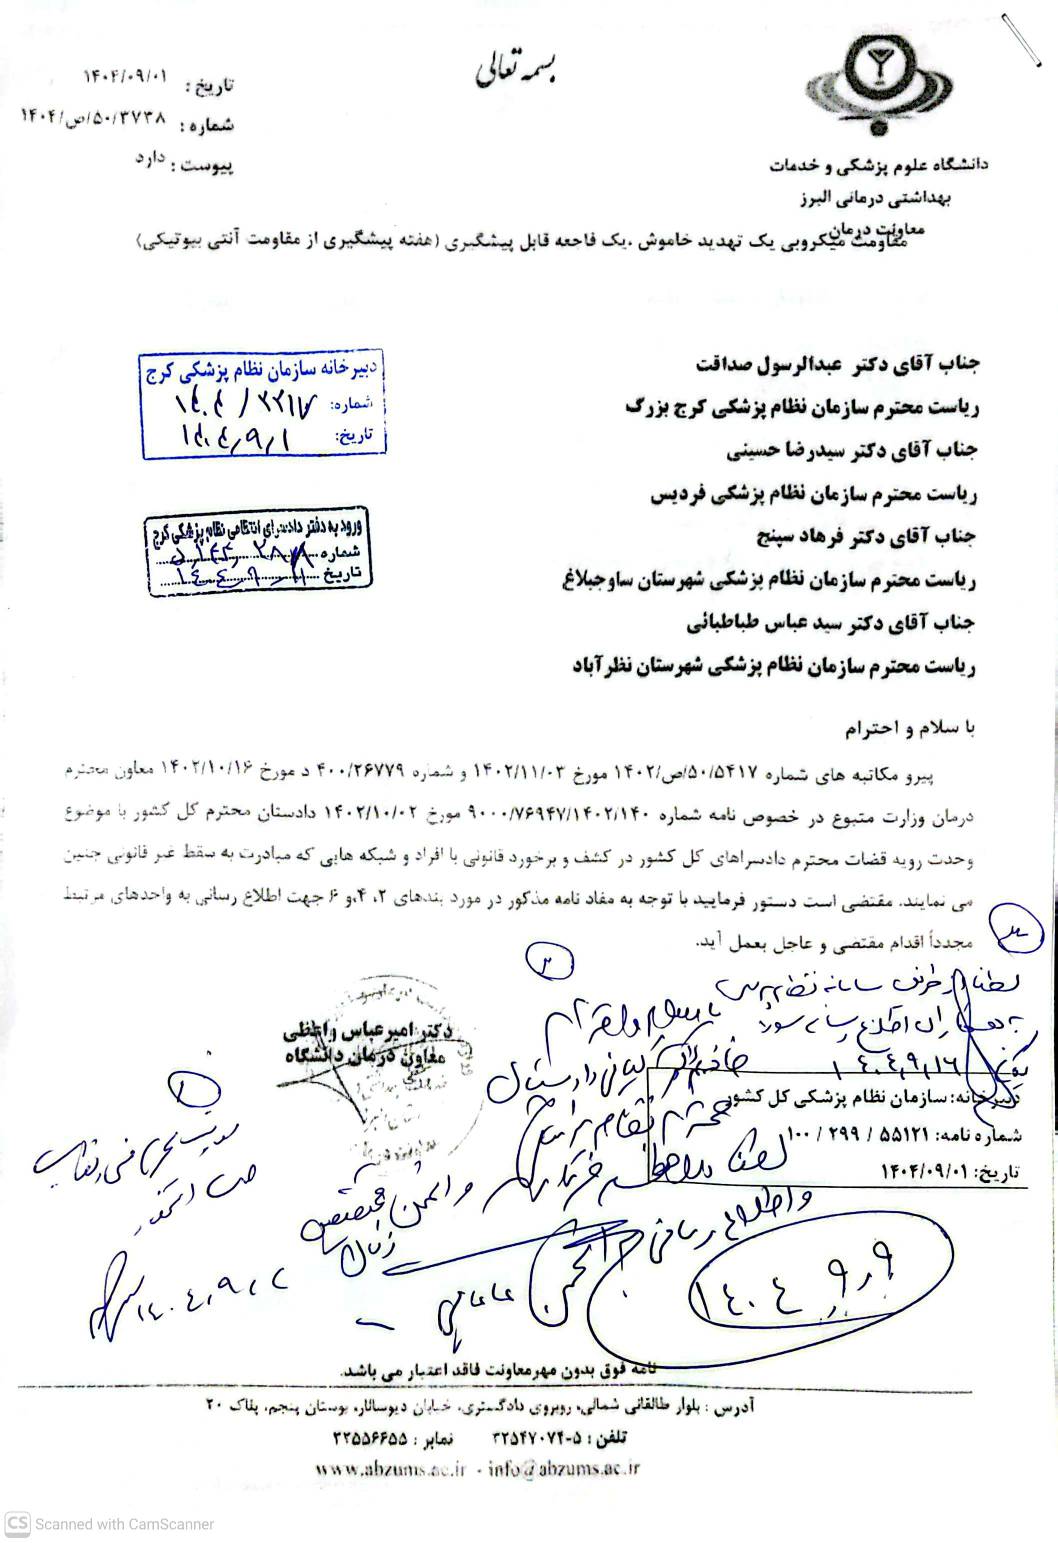 بسمه تعالی
تاریخ : ۱۴۰۴/۰۹/۰۱
شماره : ۱۴۰۴/ص/۵۰/۳۷۳۸
پیوست : دارد
دانشگاه علوم پزشکی و خدمات
بهداشتی درمانی البرز
معاونت درمان
مقاومت میکروبی یک تهدید خاموش ،یک فاجعه قابل پیشگیری (هفته پیشگیری از مقاومت آنتی بیوتیکی)
دبیرخانه سازمان نظام پزشکی کرج
شماره:
تاریخ: ۱۴۰۴,۹,۱
ورود به دفتر دادسرای انتظامی نظام پزشکی کرج
شماره
تاریخ
جناب آقای دکتر عبدالرسول صداقت
ریاست محترم سازمان نظام پزشکی کرج بزرگ
جناب آقای دکتر سیدرضا حسینی
ریاست محترم سازمان نظام پزشکی فردیس
جناب آقای دکتر فرهاد سپنج
ریاست محترم سازمان نظام پزشکی شهرستان ساوجبلاغ
جناب آقای دکتر سید عباس طباطبائی
ریاست محترم سازمان نظام پزشکی شهرستان نظرآباد
با سلام و احترام
پیرو مکاتبه های شماره ۱۴۰۲/ص/۵۰/۵۴۱۷ مورخ ۱۴۰۲/۱۱/۰۳ و شماره ۴۰۰/۲۶۷۷۹ د مورخ ۱۴۰۲/۱۰/۱۶ معاون محترم
درمان وزارت متبوع در خصوص نامه شماره ۹۰۰۰/۷۶۹۴۷/۱۴۰۲/۱۴۰ مورخ ۱۴۰۲/۱۰/۰۲ دادستان محترم کل کشور با موضوع
وحدت رویه قضات محترم دادسراهای کل کشور در کشف و برخورد قانونی با افراد و شبکه هایی که مبادرت به سقط غیر قانونی جنین
می نمایند. مقتضی است دستور فرمایید با توجه به مفاد نامه مذکور در مورد بندهای ۲، ۴،و ۶ جهت اطلاع رسانی به واحدهای مرتبط
مجدداً اقدام مقتضی و عاجل بعمل آید.
دکتر امیرعباس واعظی
معاون درمان دانشگاه
لطفا از طریق سامانه نظام پزشکی
به همکاران اطلاع رسانی شود
۱۴۰۴,۹,۱۶
دبیرخانه: سازمان نظام پزشکی کل کشور
شماره نامه: ۱۰۰ / ۲۹۹ / ۵۵۱۲۱
تاریخ: ۱۴۰۴/۰۹/۰۱
۲
لطفا ملاحظه فرمائید
و انجمن
زنان
۱۴۰۴ ,۹ ,۹
۱
۱۴۰۴,۹,۲
نامه فوق بدون مهرمعاونت فاقد اعتبار می باشد.
آدرس : بلوار طالقانی شمالی، روبروی دادگستری، خیابان دیوسالار، بوستان پنجم، پلاک ۲۰
تلفن : ۵-۳۲۵۴۷۰۷۴ نمابر : ۳۲۵۵۶۶۵۵
www.abzums.ac.ir - info@abzums.ac.ir
CS Scanned with CamScanner